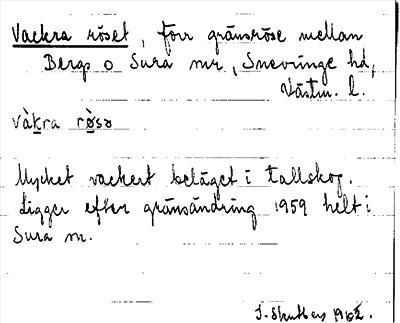 Vackra röset, förr gränsröse mellan
Bergs o Sura snr, Snevringe hd,
Västm. l.
vàkra rö̀sə
Mycket vackert beläget i tallskog.
Ligger efter gränsändring 1959 helt i
Sura sn.
1962.